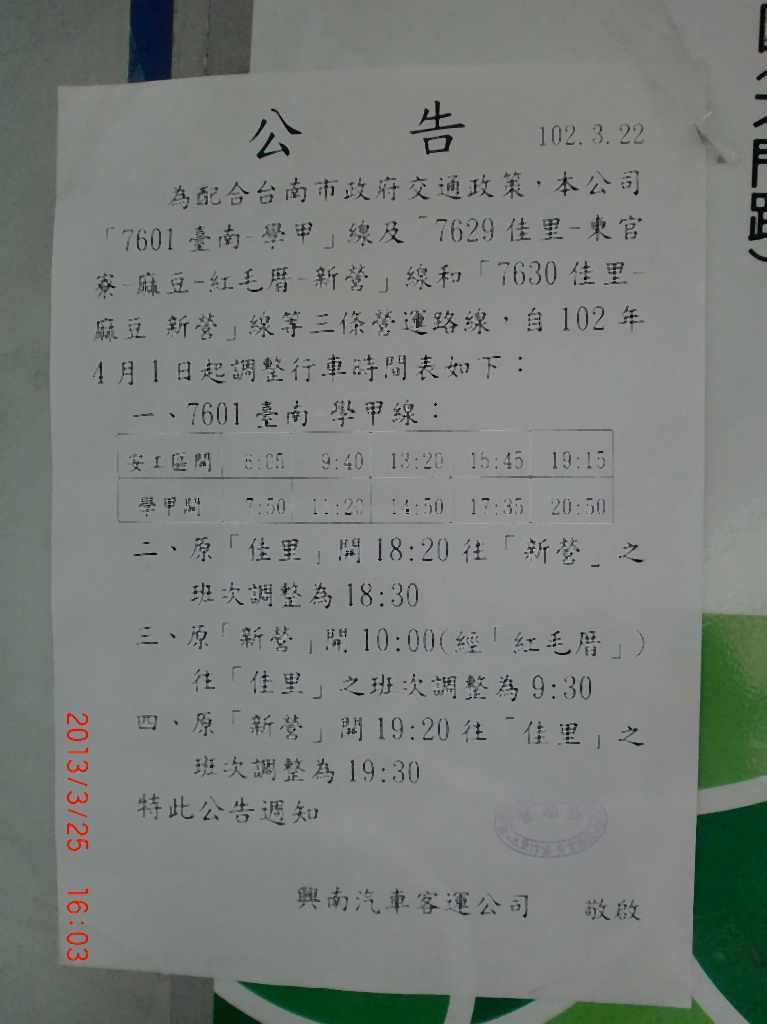 公告 102.3.22
為配合台南市政府交通政策，本公司
「7601臺南-學甲」線及「7629佳里-東官
寮-麻豆-紅毛厝-新營」線和「7630佳里-
麻豆 新營」線等三條營運路線，自102年
4月1日起調整行車時間表如下：
一、7601臺南 學甲線：
安工區開 9:40 13:20 15:45 19:15
學甲開 7:50 11:20 14:50 17:35 20:50
二、原「佳里」開18:20往「新營」之
班次調整為18:30
三、原「新營」開10:00(經「紅毛厝」)
往「佳里」之班次調整為9:30
四、原「新營」開19:20往「佳里」之
班次調整為19:30
特此公告週知
興南汽車客運公司 敬啟
2013/3/25 16:03